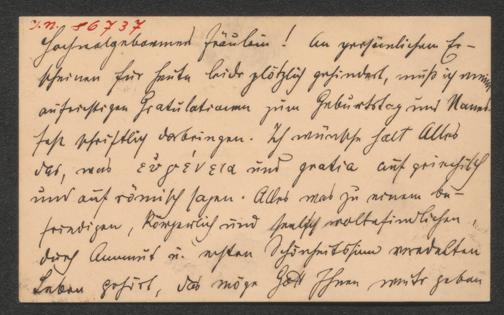 I.N. 86737
Hochwolgebornes Fräulein! Am persönlichen Er-
scheinen für heute leider plötzlich gehindert, muß ich meine
aufrichtigen Gratulationen zum Geburtstag und Namens-
fest schriftlich darbringen. Ich wünsche halt Alles
das, was εὐγένεια und gratia auf griechisch
und auf römisch sagen. Alles was zu einem be-
friedigen, körperlich und seelisch wolbefindlichen,
durch Anmut u. ersten Schönheitssinn veredelten
Leben gehört, das möge Gott Ihnen geben